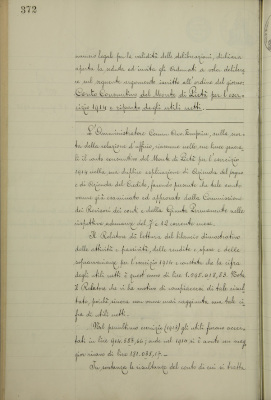 372
numero legale per la validità delle deliberazioni, dichiara
aperta la seduta ed invita gli Adunati a voler delibera-
re sul seguente argomento inscritto all'ordine del giorno:
Conto Consuntivo del Monte di Pietà per l'eser-
cizio 1914 e riparto degli utili netti.
L'Amministratore Comm. Avv. , sulla scor-
ta della relazione d'ufficio, riassume nelle sue linee genera-
li il conto consuntivo del Monte di Pietà per l'esercizio
1914 nella sua duplice esplicazione di Azienda del pegno
e di Azienda del Credito, facendo presente che tale conto
venne già esaminato ed approvato dalla Commissione
dei Revisori dei conti e dalla Giunta Permanente nelle
rispettive adunanze del 7 e 12 corrente mese.
Il Relatore dà lettura del bilancio dimostrativo
delle attività e passività, delle rendite e spese e delle
sopravvenienze per l'esercizio 1914 e constata che la cifra
degli utili netti è quest'anno di lire
Il Relatore che vi ha motivo di compiacersi di tale risul-
tato, poichè sinora non venne mai raggiunta una tale ci-
fra di utili netti.
Nel penultimo esercizio (1913) gli utili furono accer-
tati in lire , onde nel 1914 si è avuto un mag-
gior ricavo di lire
In sostanza le risultanze del conto di cui si tratta